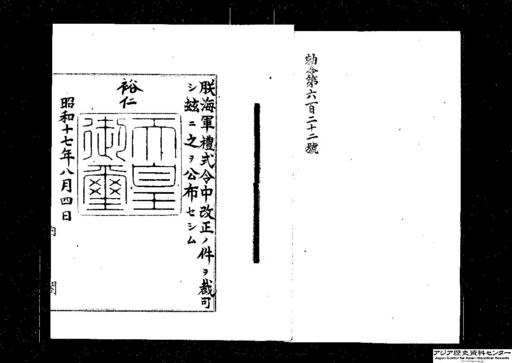 勅令第六百二十二號
朕海軍禮式令中改正ノ件ヲ裁可
シ茲ニ之ヲ公布セシム
裕仁
天皇
御璽
昭和十七年八月四日
内閣
アジア歴史資料センター
Japan Center for Asian Historical Records